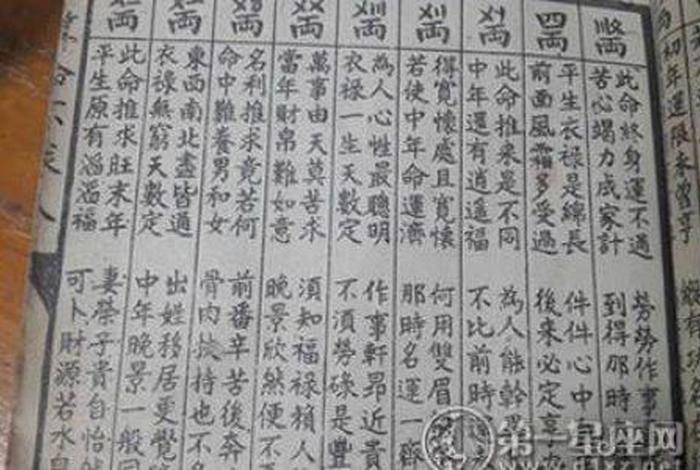 初年運限未曾亨
兩
此命終身運不通 勞勞作事
苦心竭力成家計 到得那時
四兩
平生衣祿是綿長 件件心中
前面風霜多受過 後來必定享
兩
此命推來是不同 為人能幹
中年還有逍遙福 不比前時
兩
得寬懷處且寬懷 何用雙眉
若使中年命運濟 那時名運一齊
兩
為人心性最聰明 作事軒昂近貴
衣祿一生天數定 不須勞碌是豐
兩
萬事由天莫苦求 須知福祿賴人
當年財帛難如意 晚景欣然便不
兩
名利推求竟若何 前番辛苦後奔
命中難養男和女 骨肉扶持也不
兩
東西南北盡皆通 出姓移居更覺
衣祿無窮天數定 中年晚景一般同
兩
此命推求旺末年 妻榮子貴自怡
平生原有滔滔福 可卜財源若水
第一星座网